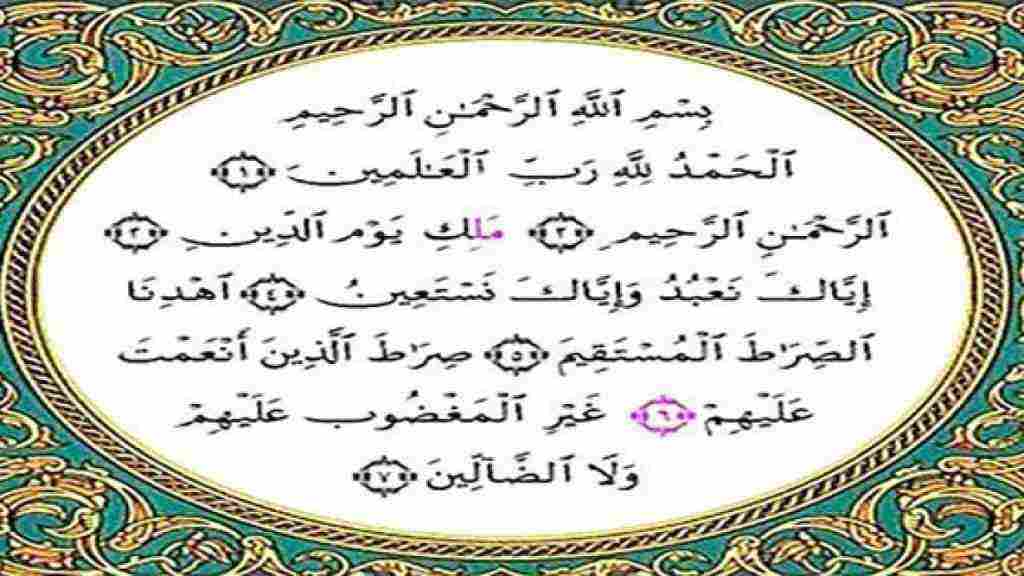 بِسْمِ ٱللَّهِ ٱلرَّحْمَٰنِ ٱلرَّحِيمِ
ٱلْحَمْدُ لِلَّهِ رَبِّ ٱلْعَٰلَمِينَ ١
ٱلرَّحْمَٰنِ ٱلرَّحِيمِ ٢ مَلِكِ يَوْمِ ٱلدِّينِ ٣
إِيَّاكَ نَعْبُدُ وَإِيَّاكَ نَسْتَعِينُ ٤ ٱهْدِنَا
ٱلصِّرَٰطَ ٱلْمُسْتَقِيمَ ٥ صِرَٰطَ ٱلَّذِينَ أَنْعَمْتَ
عَلَيْهِمْ ٦ غَيْرِ ٱلْمَغْضُوبِ عَلَيْهِمْ
وَلَا ٱلضَّآلِّينَ ٧